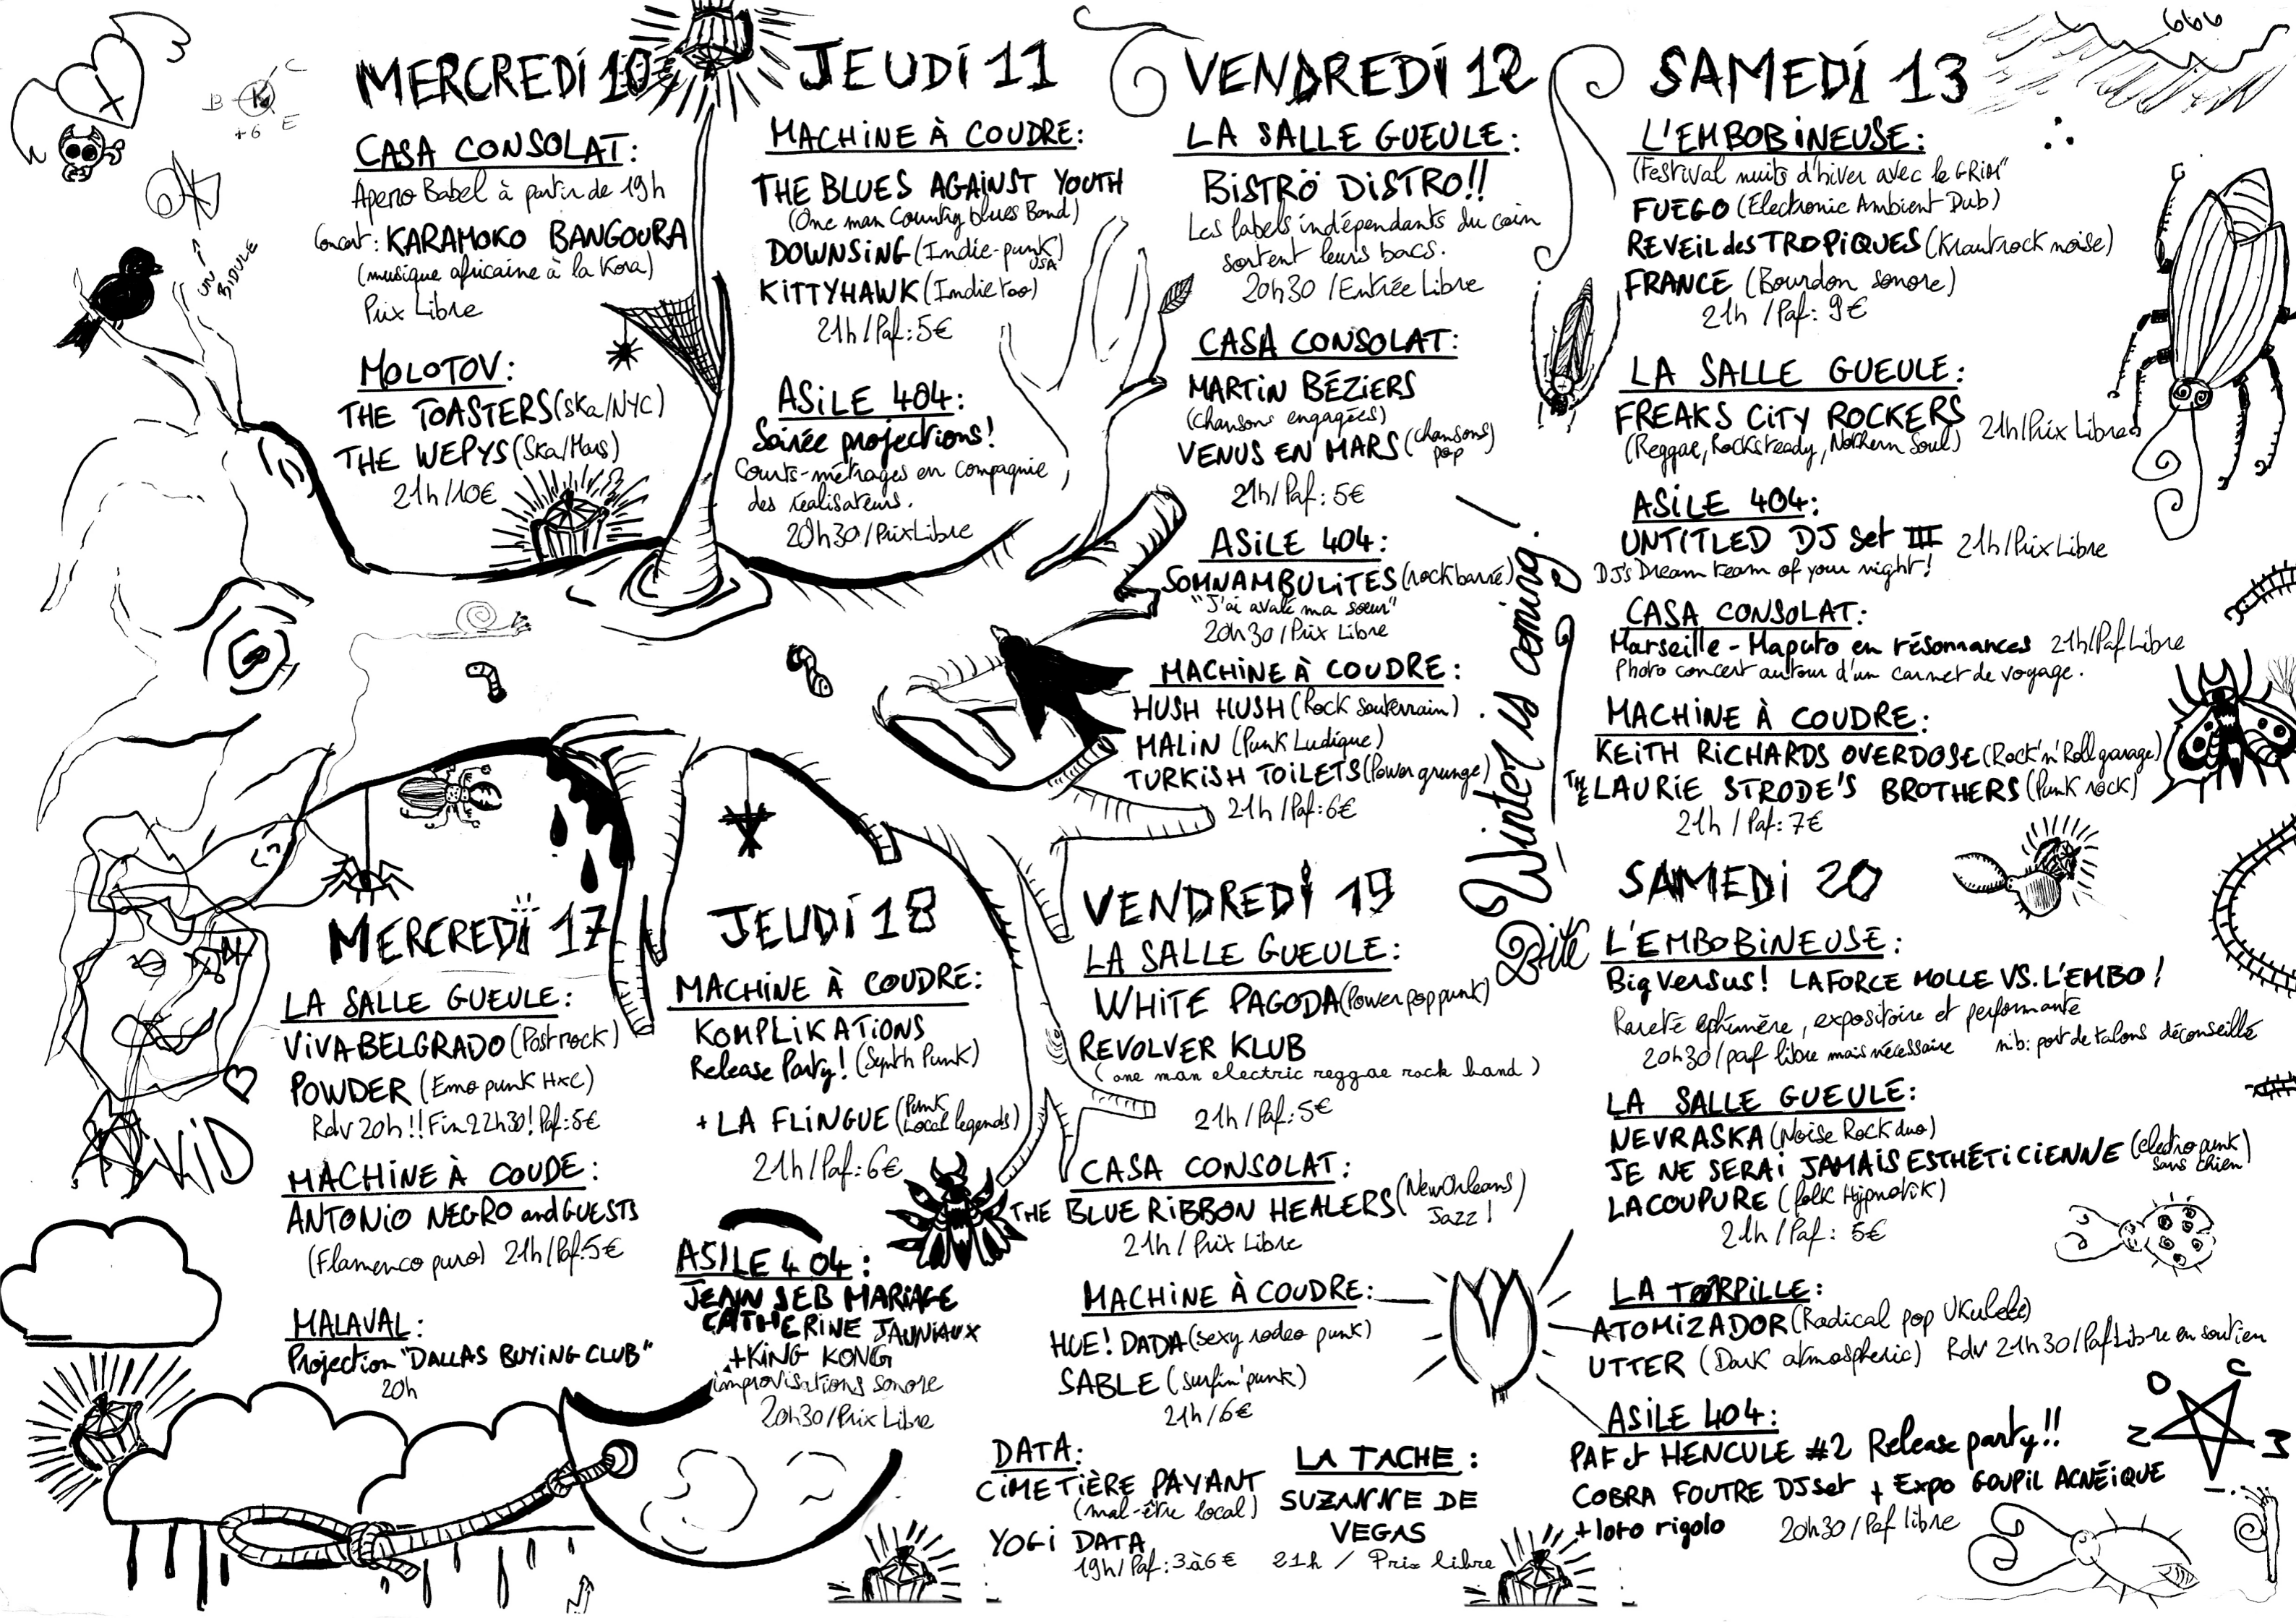 MERCREDI 10
CASA CONSOLAT:
Apero Babel à partir de 19h
Concert: KARAMOKO BANGOURA
(musique africaine à la Kora)
Prix Libre
MOLOTOV:
THE TOASTERS (Ska/NYC)
THE WEPYS (Ska/Mars)
21h/10€
JEUDI 11
MACHINE À COUDRE:
THE BLUES AGAINST YOUTH
(One man Country blues Band)
DOWNSING (Indie-punk USA)
KITTYHAWK (Indie too)
21h/Paf: 5€
ASILE 404:
Soirée projections!
Courts-métrages en compagnie
des réalisateurs.
20h30/Prix Libre
VENDREDI 12
LA SALLE GUEULE:
BISTRÖ DISTRO!!
Les labels indépendants du coin
sortent leurs bacs.
20h30 /Entrée Libre
CASA CONSOLAT:
MARTIN BÉZIERS
(chansons engagées)
VENUS EN MARS (chansons pop)
21h/Paf: 5€
ASILE 404:
SOMNAMBULITES (rock barré)
"J'ai avalé ma soeur"
20h30/Prix Libre
MACHINE À COUDRE:
HUSH HUSH (Rock Souterrain)
MALIN (Punk Ludique)
TURKISH TOILETS (Power grunge)
21h /Paf: 6€
SAMEDI 13
L'EMBOBINEUSE:
(Festival nuits d'hiver avec le GRIM"
FUEGO (Electronic Ambient Dub)
REVEIL des TROPIQUES (Krautrock noise)
FRANCE (Bourdon sonore)
21h /Paf: 9€
LA SALLE GUEULE:
FREAKS CITY ROCKERS 21h/Prix Libre
(Reggae, Rocksteady, Northern Soul)
ASILE 404:
UNTITLED DJ Set III 21h/Prix Libre
DJ's Dream team of your night!
CASA CONSOLAT:
Marseille - Maputo en résonnances 21h/Paf Libre
Photo concert autour d'un carnet de voyage.
MACHINE À COUDRE:
KEITH RICHARDS OVERDOSE (Rock'n'Roll garage)
THE LAURIE STRODE'S BROTHERS (Punk rock)
21h / Paf: 7€
666
B K C
+6 E
UN BIDULE
Bite Winter is coming!
MERCREDI 17
LA SALLE GUEULE:
VIVA BELGRADO (Post rock)
POWDER (Emo punk HxC)
Rdv 20h!! Fin 22h30! Paf: 5€
MACHINE À COUDE:
ANTONIO NEGRO and GUESTS
(Flamenco puro) 21h/Paf: 5€
MALAVAL:
Projection "DALLAS BUYING CLUB"
20h
JEUDI 18
MACHINE À COUDRE:
KOMPLIKATIONS
Release Party! (Synth Punk)
+ LA FLINGUE (Punk Local legends)
21h/Paf: 6€
ASILE 404:
JEAN SEB MARIAGE
CATHERINE JAUNIAUX
+KING KONG
improvisations sonore
20h30/Prix Libre
VENDREDI 19
LA SALLE GUEULE:
WHITE PAGODA (Power pop punk)
REVOLVER KLUB
(one man electric reggae rock band)
21h/Paf: 5€
CASA CONSOLAT:
THE BLUE RIBBON HEALERS (New Orleans Jazz!
21h / Prix Libre
MACHINE À COUDRE:
HUE! DADA (sexy rodeo punk)
SABLE (surfin' punk)
21h/6€
DATA:
CIMETIÈRE PAYANT
(mal-être local)
YOGI DATA
19h/Paf: 3 à 6€
LA TACHE:
SUZANNE DE
VEGAS
21h / Prix libre
SAMEDI 20
L'EMBOBINEUSE:
Big Versus! LA FORCE MOLLE VS. L'EMBO!
Rareté éphémère, expositoire et performante
20h30/paf libre mais nécessaire nib: port de talons déconseillé
LA SALLE GUEULE:
NEVRASKA (Noise Rock duo)
JE NE SERAI JAMAIS ESTHÉTICIENNE (electro punk sans chien)
LA COUPURE (folk Hypnotik)
21h/Paf: 5€
LA TORPILLE:
ATOMIZADOR (Radical pop Ukulele)
UTTER (Dark atmospheric) Rdv 21h30/Paf Libre en soutien
ASILE 404:
PAF & HENCULE #2 Release party!!
COBRA FOUTRE DJ set + Expo GOUPIL ACNÉIQUE
+loto rigolo 20h30/Paf libre